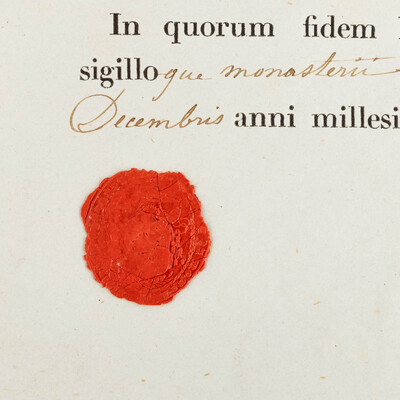 In quorum fidem
sigilloque monasterii
Decembris anni millesi